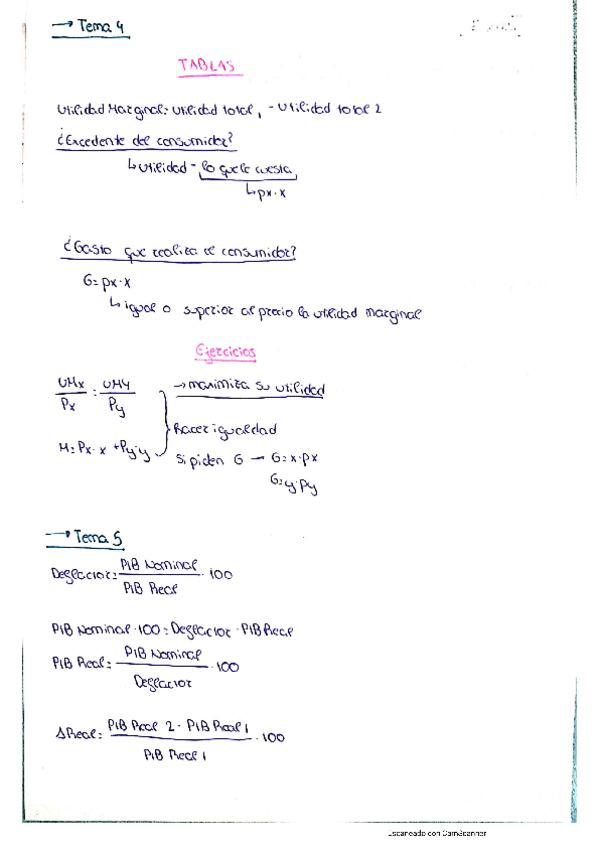 → Tema 4
TABLAS
Utilidad Marginal: Utilidad total 1 - Utilidad total 2
¿Excedente del consumidor?
↳ Utilidad - lo que le cuesta
↳ px · x
¿Gasto que realiza el consumidor?
G = px · x
↳ igual o superior al precio la utilidad marginal
Ejercicios
UMx / Px = UMy / Py → maximiza su utilidad
hacer igualdad
M = Px · x + Py · y
Si piden G → G = x · px
G = y · py
→ Tema 5
Deflactor = PIB Nominal / PIB Real · 100
PIB Nominal · 100 = Deflactor · PIB Real
PIB Real = PIB Nominal / Deflactor · 100
Δ Real = PIB Real 2 - PIB Real 1 / PIB Real 1 · 100
Escaneado con CamScanner